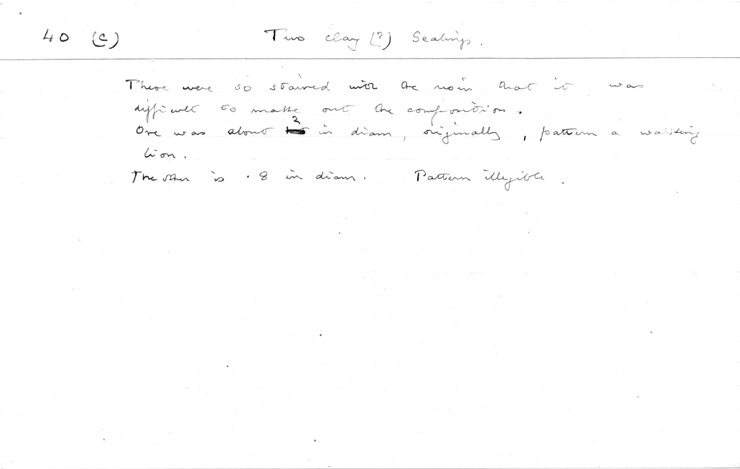 40 (c) Two clay (?) Sealings.
These were so stained with the resin that it was
difficult to make out the composition.
One was about 2 in diam, originally, pattern a walking
lion.
The other is .8 in diam. Pattern illegible.